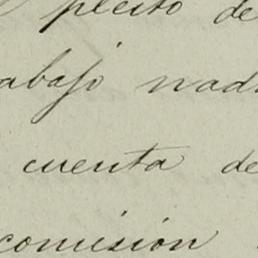 pleito de
abajo nad
cuenta de
comisión